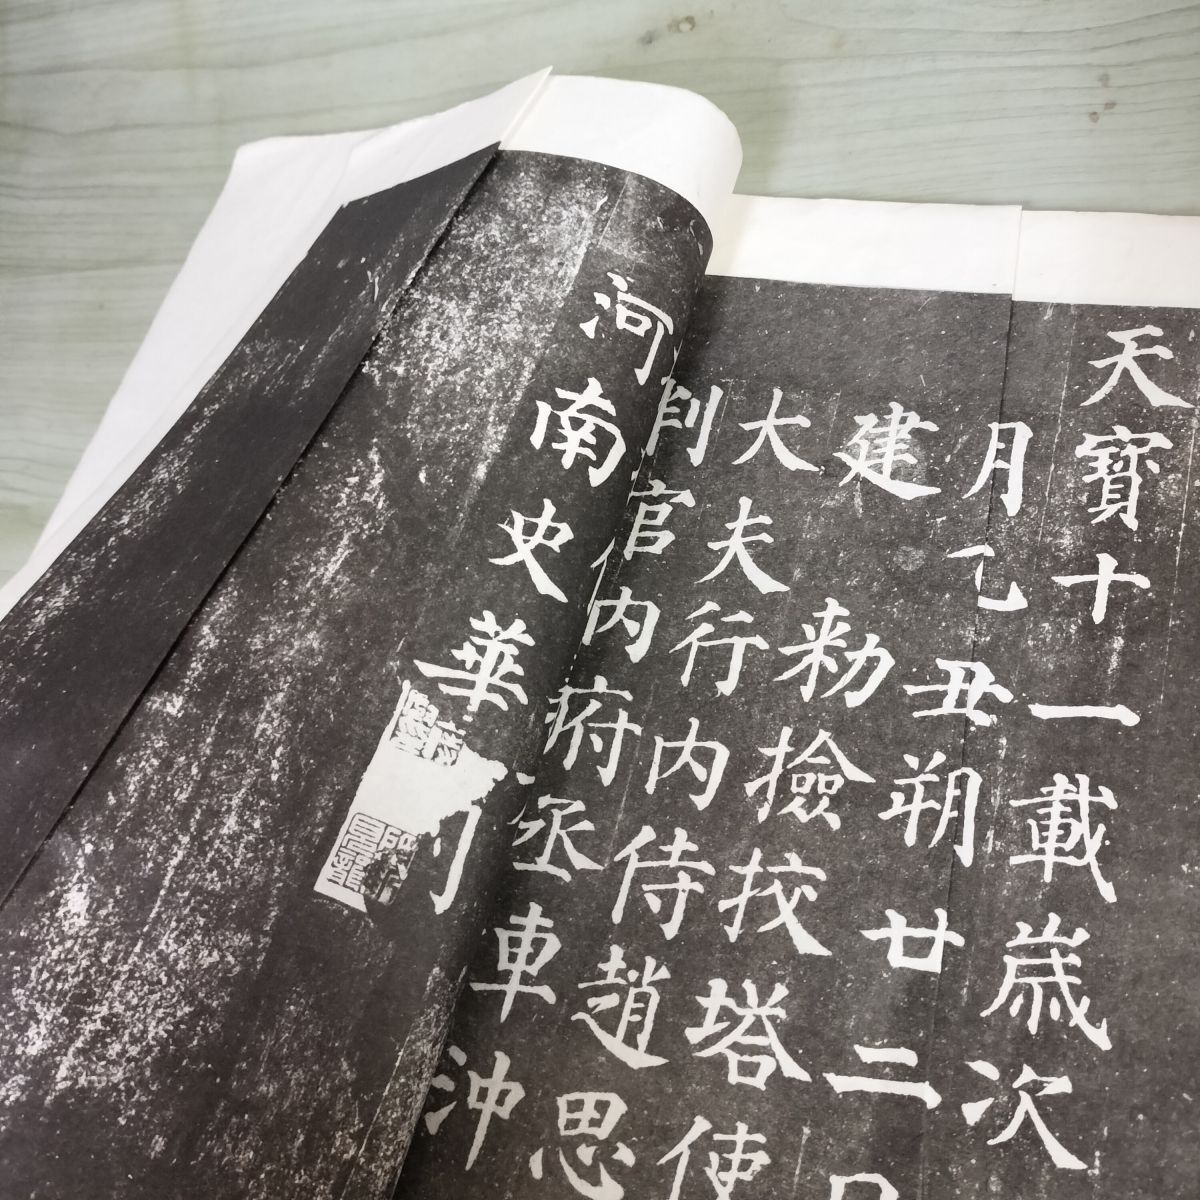 天寶十一載歲次
月乙丑朔廿二日
建
勅撿挍塔使
大夫行內侍趙思
判官內府丞車沖
河南史華刻